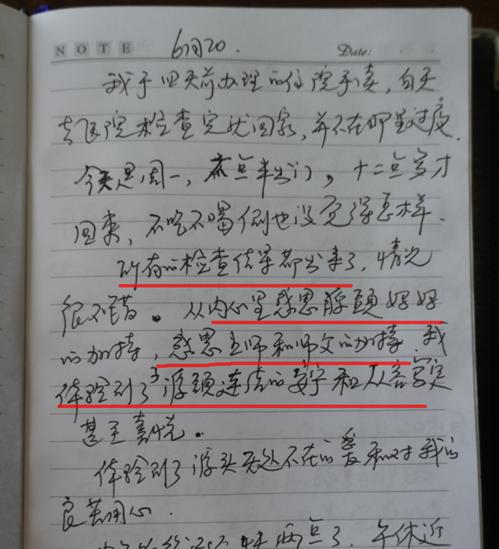 NOTE 6月20. Date:
我于四天前办理的住院手续,白天
去医院检查完就回家,并不在那里过夜.
今天是周一,点半出门,十二点多才
回来,不吃不喝倒也没觉得怎样.
所有的检查结果都出来了,情况
很不错。从内心里感恩源头妈妈
的加持,感恩主师和师父的加持.我
体验到了源头连结的安宁和从容笃定
甚至喜悦。
体验到了源头无处不在的爱和对我的
良苦用心.
两点了,午休近